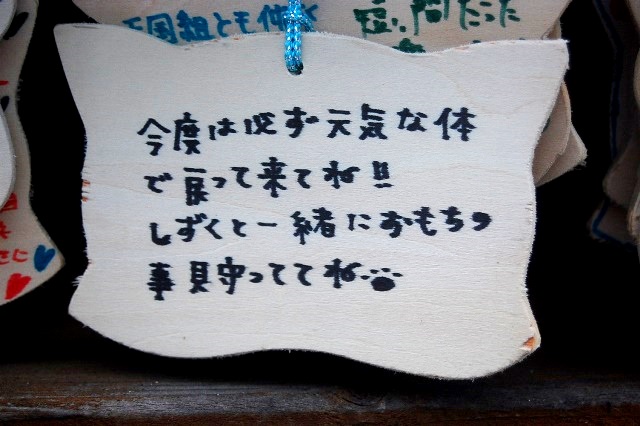 天国組とも仲良く
短い間だった
今度は必ず元気な体
で戻って来てね!!
しずくと一緒におもちっ
事見守っててね